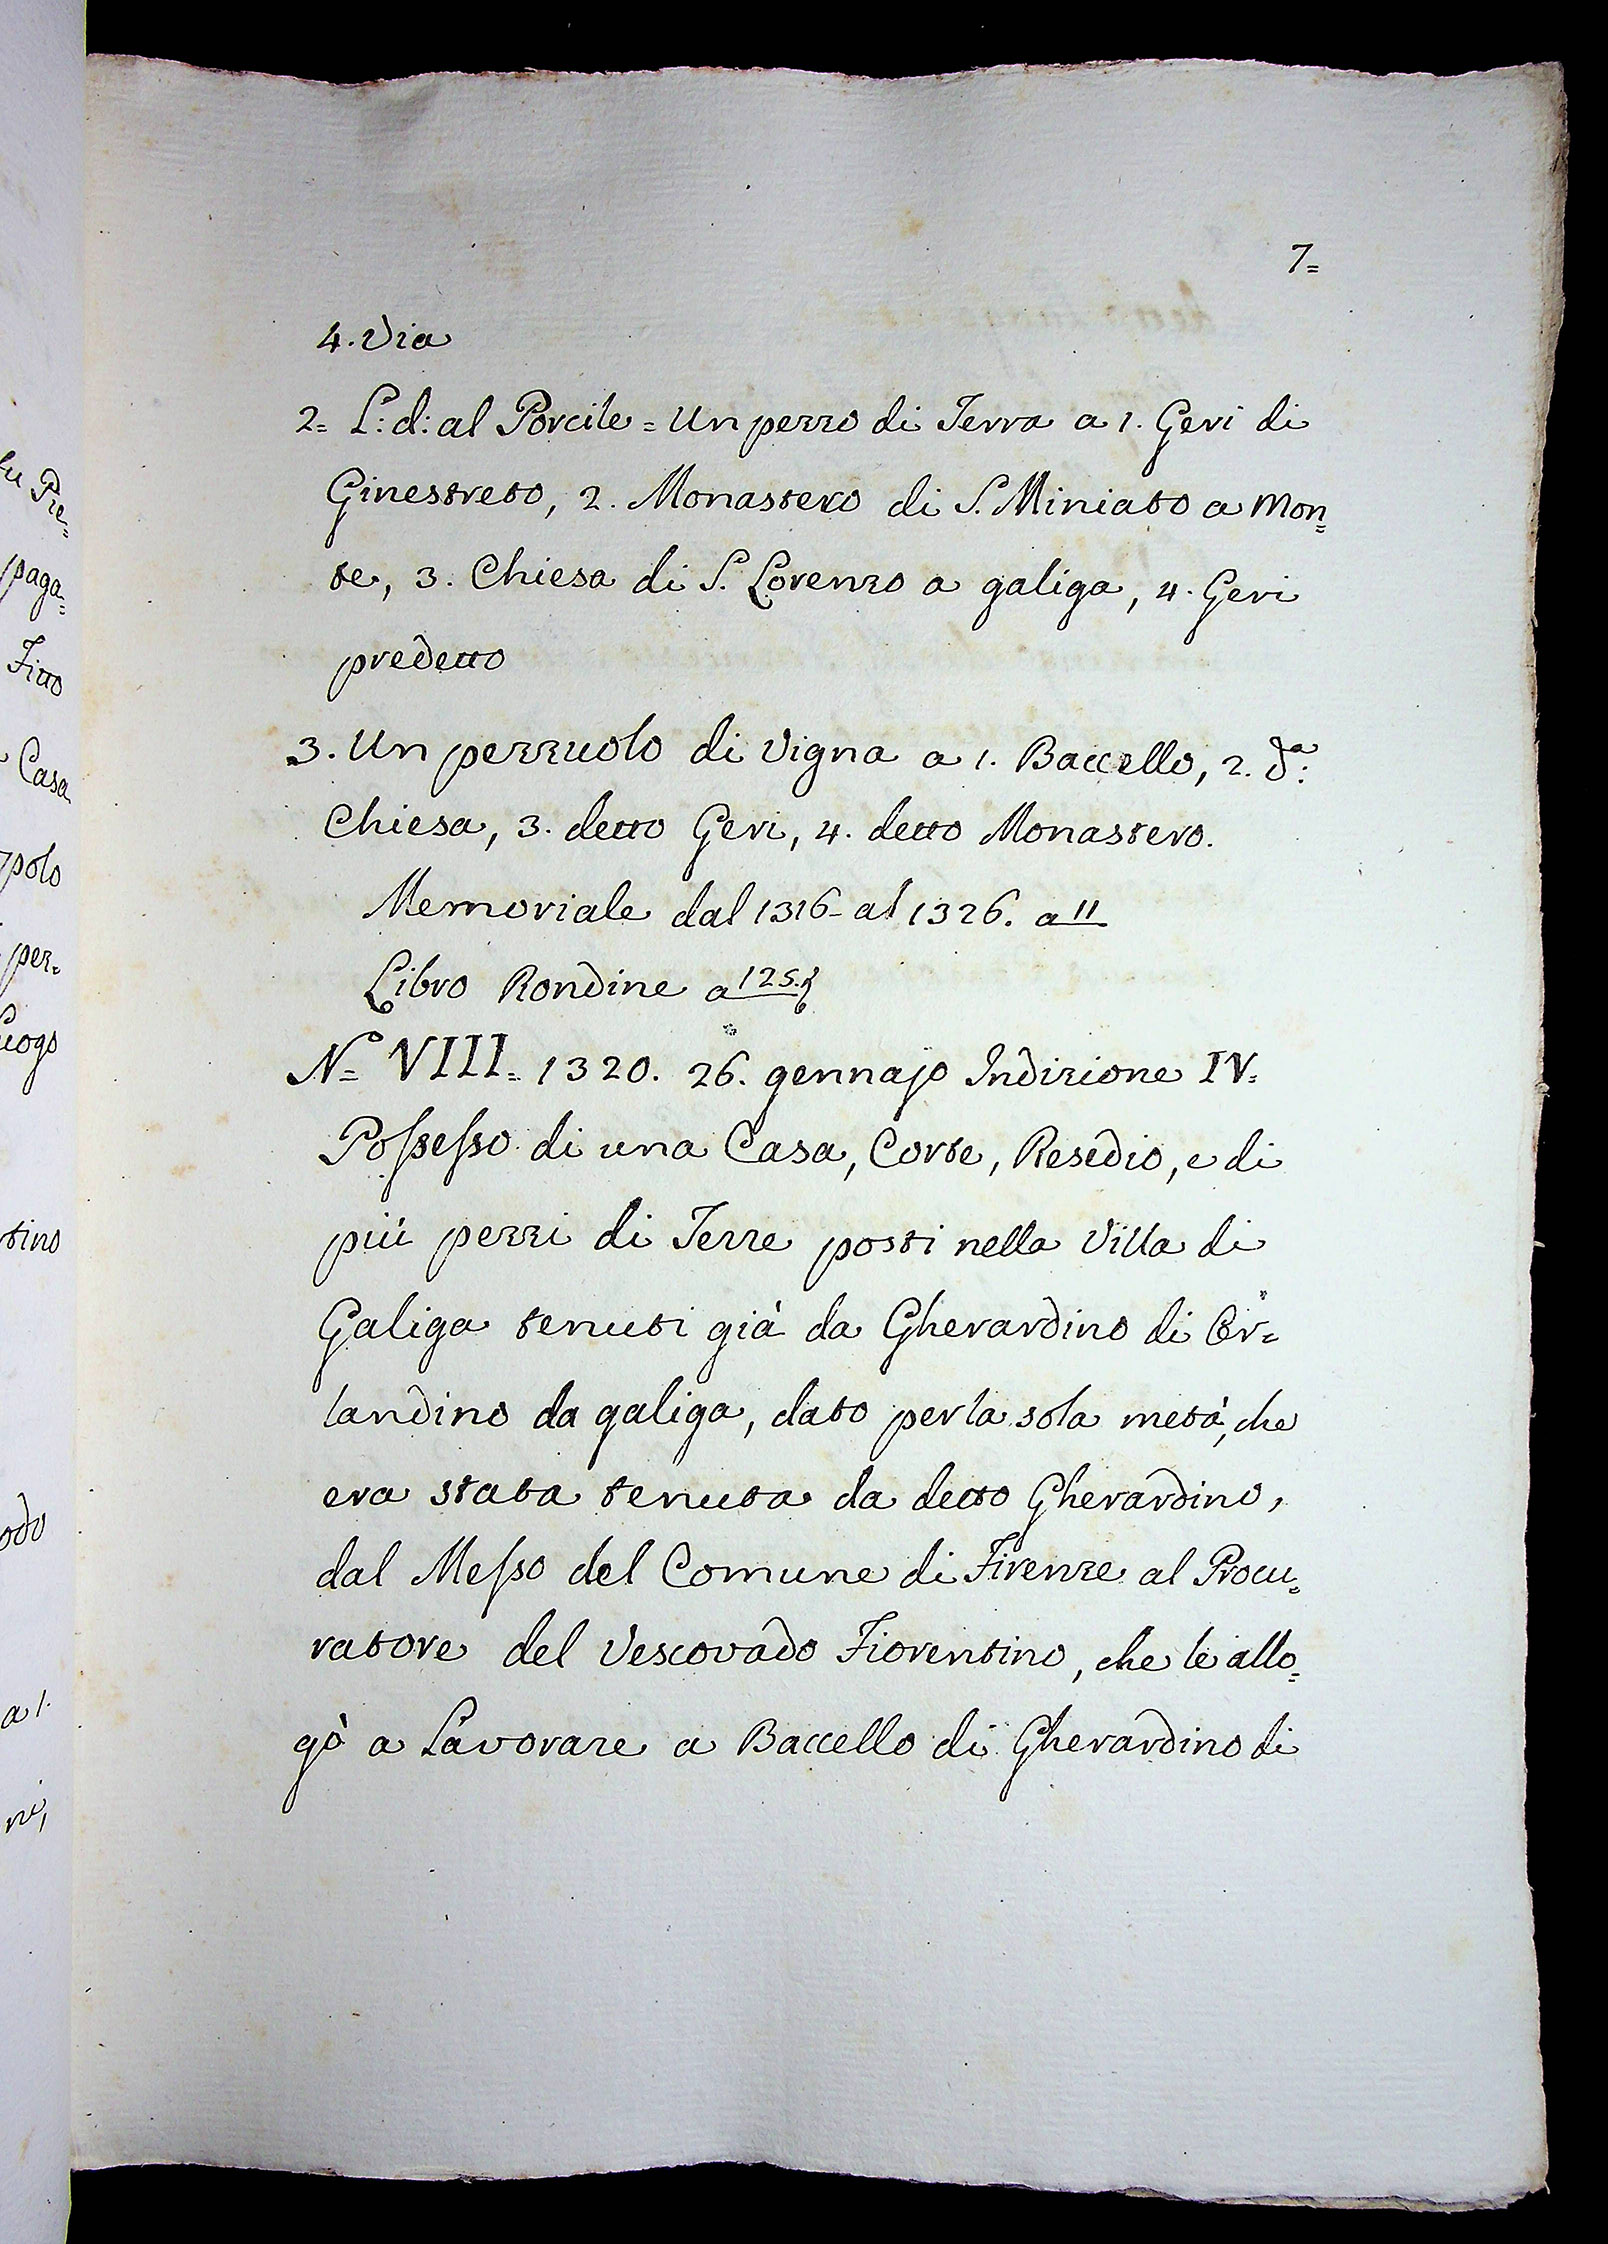 7=
4. Via
2= L: d: al Porcile = Un pezzo di Terra a 1. Geri di
Ginestreto, 2. Monastero di S. Miniato a Mon=
te, 3. Chiesa di S. Lorenzo a galiga, 4. Geri
predetto
3. Un pezzuolo di Vigna a 1. Baccello, 2. d.ª
Chiesa, 3. detto Geri, 4. detto Monastero.
Memoriale dal 1316 = al 1326. a 11
Libro Rondine a 125.
N.º VIII = 1320. 26. gennajo Indizione IV=
Possesso di una Casa, Corte, Resedio, e di
più pezzi di Terre posti nella Villa di
Galiga tenuti già da Gherardino di Or=
landino da galiga, dato per la sola metà, che
era stata tenuta da detto Gherardino,
dal Messo del Comune di Firenze al Procu=
ratore del Vescovado Fiorentino, che le allo=
gò a Lavorare a Baccello di Gherardino di
lu Pre=
paga=
Fitto
Casa
polo
pez=
uogo
tino
odo
a 1.
ni,